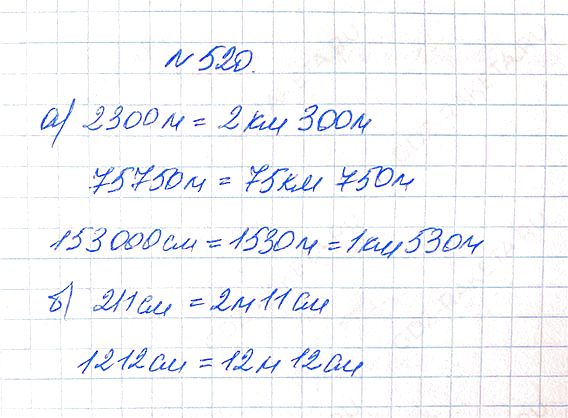 N 520.
а) 2300м = 2км 300м
75750м = 75км 750м
153000см = 1530м = 1км 530м
б) 211см = 2м 11см
1212см = 12м 12см